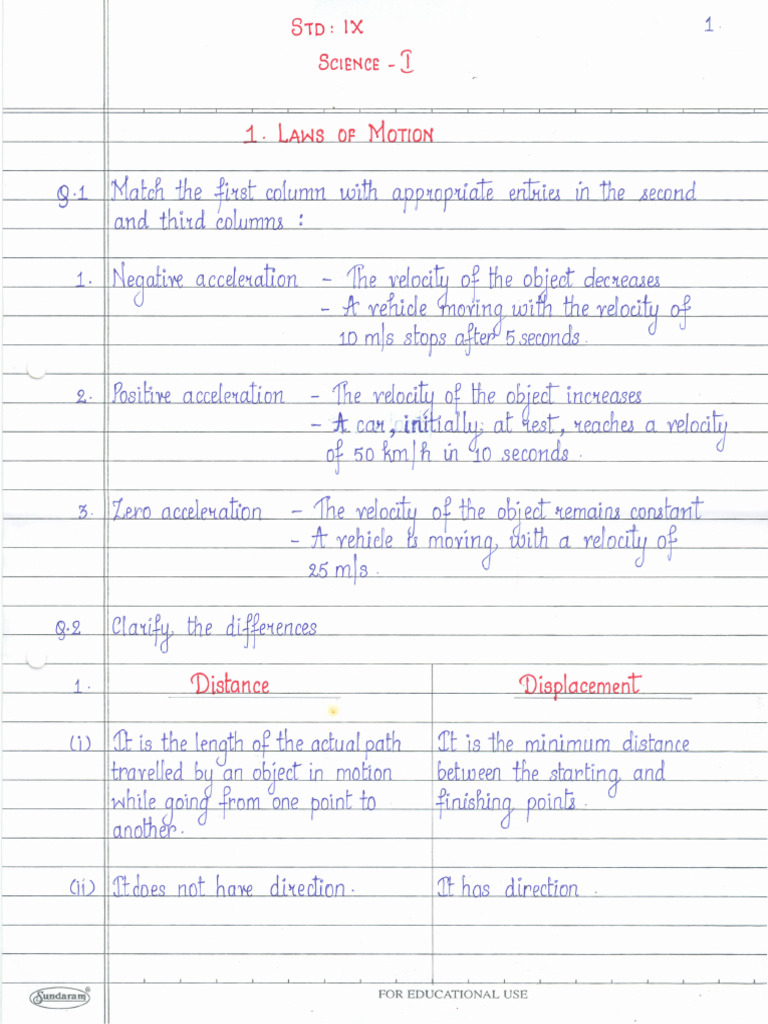 STD: IX
1.
SCIENCE - I
1. LAWS OF MOTION
Q.1 Match the first column with appropriate entries in the second
and third columns :
1. Negative acceleration - The velocity of the object decreases
- A vehicle moving with the velocity of
10 m/s stops after 5 seconds.
2. Positive acceleration - The velocity of the object increases
- A car, initially at rest, reaches a velocity
of 50 km/h in 10 seconds.
3. Zero acceleration - The velocity of the object remains constant
- A vehicle is moving with a velocity of
25 m/s.
Q.2 Clarify the differences
1. Distance Displacement
(i) It is the length of the actual path It is the minimum distance
travelled by an object in motion between the starting and
while going from one point to finishing points.
another.
(ii) It does not have direction. It has direction.
Sundaram®
FOR EDUCATIONAL USE